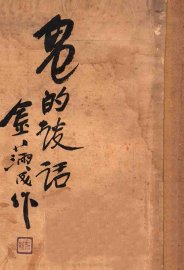 鬼的谈话
金满成作